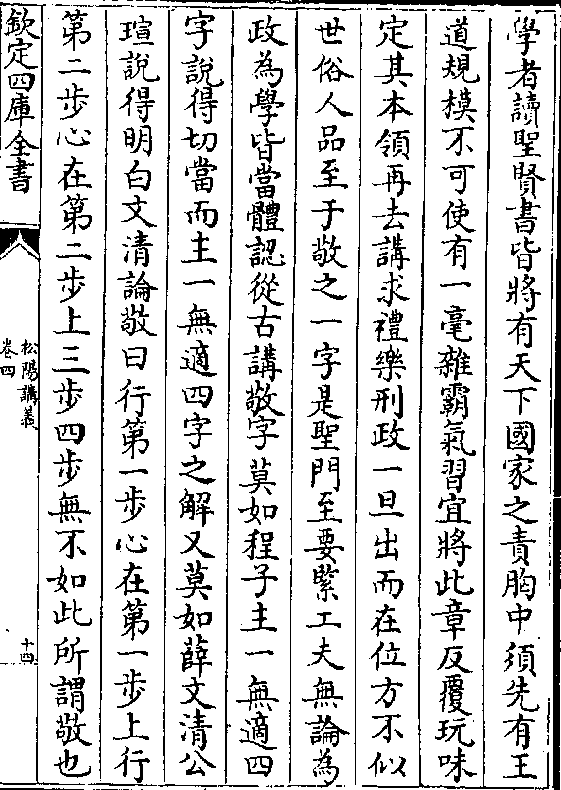 學者讀聖賢書皆將有天下國家之責胸中須先有王
道規模不可使有一毫雜霸氣習宜將此章反覆玩味
定其本領再去講求禮樂刑政一旦出而在位方不似
世俗人品至于敬之一字是聖門至要緊工夫無論為
政為學皆當體認從古講敬字莫如程子主一無適四
字說得切當而主一無適四字之解又莫如薛文清公
瑄說得明白文清論敬曰行第一步心在第一步上行
第二步心在第二步上三步四步無不如此所謂敬也
欽定四庫全書
松陽講義
卷四
十四